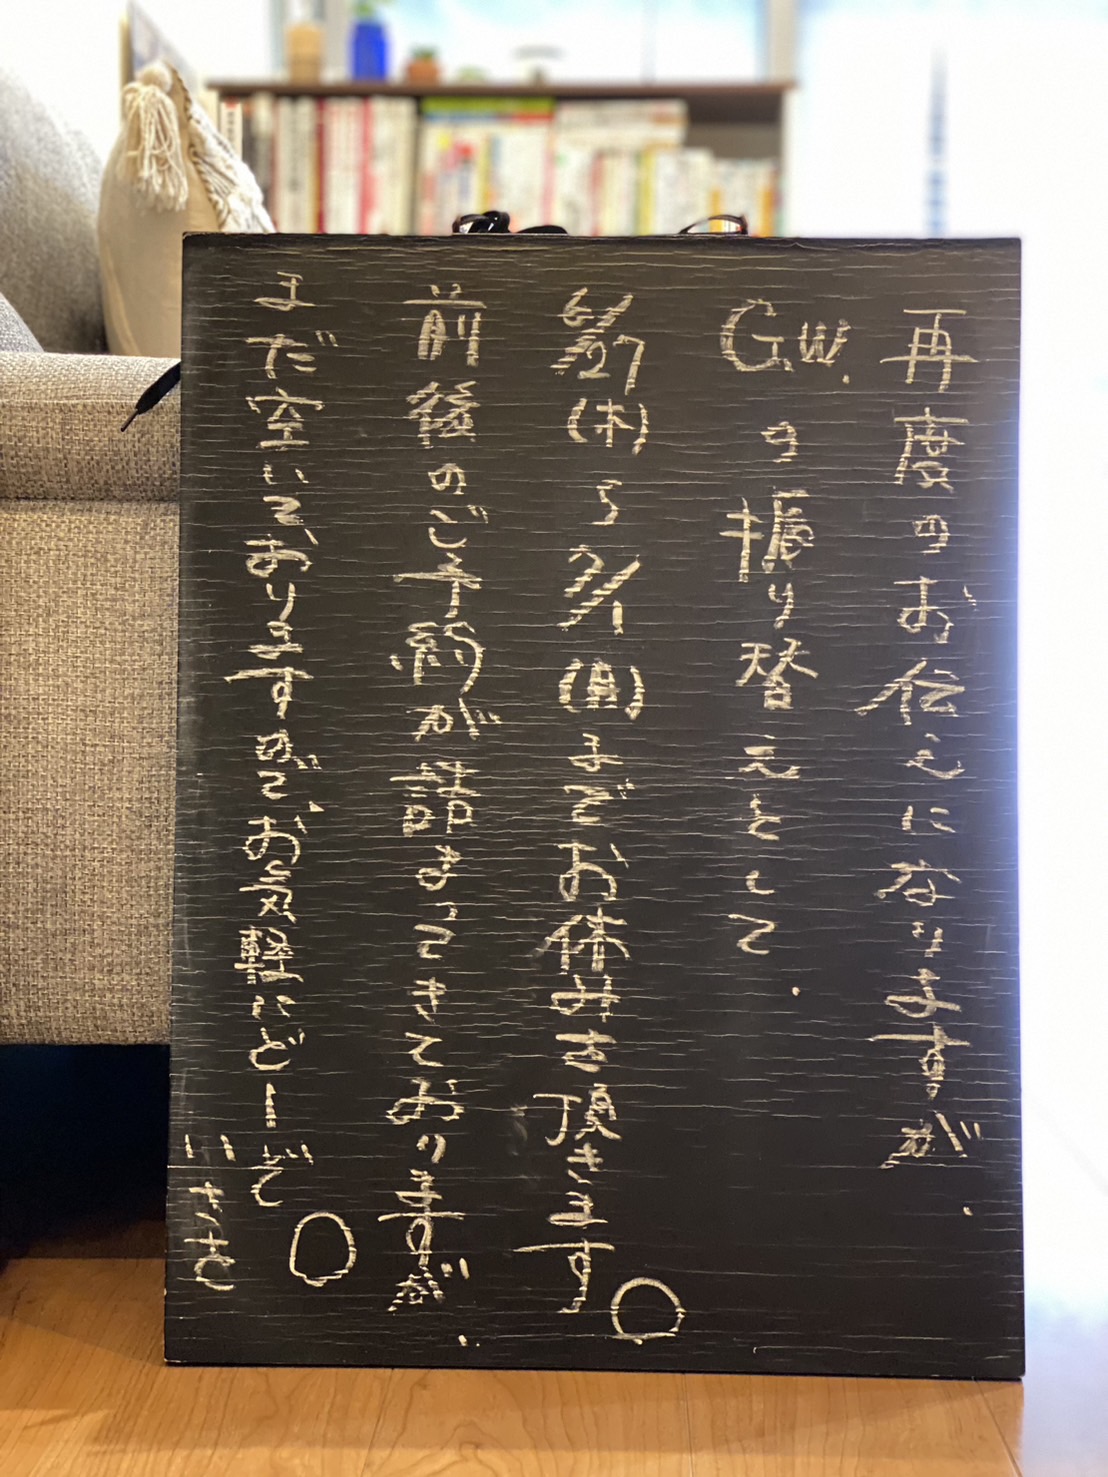 再度のお伝えになりますが、
G.W.の振り替えとして、
6/27(木)〜7/1(月)までお休みを頂きます。
前後のご予約が詰まってきておりますが、
まだ空いておりますので、お気軽にどーぞ。